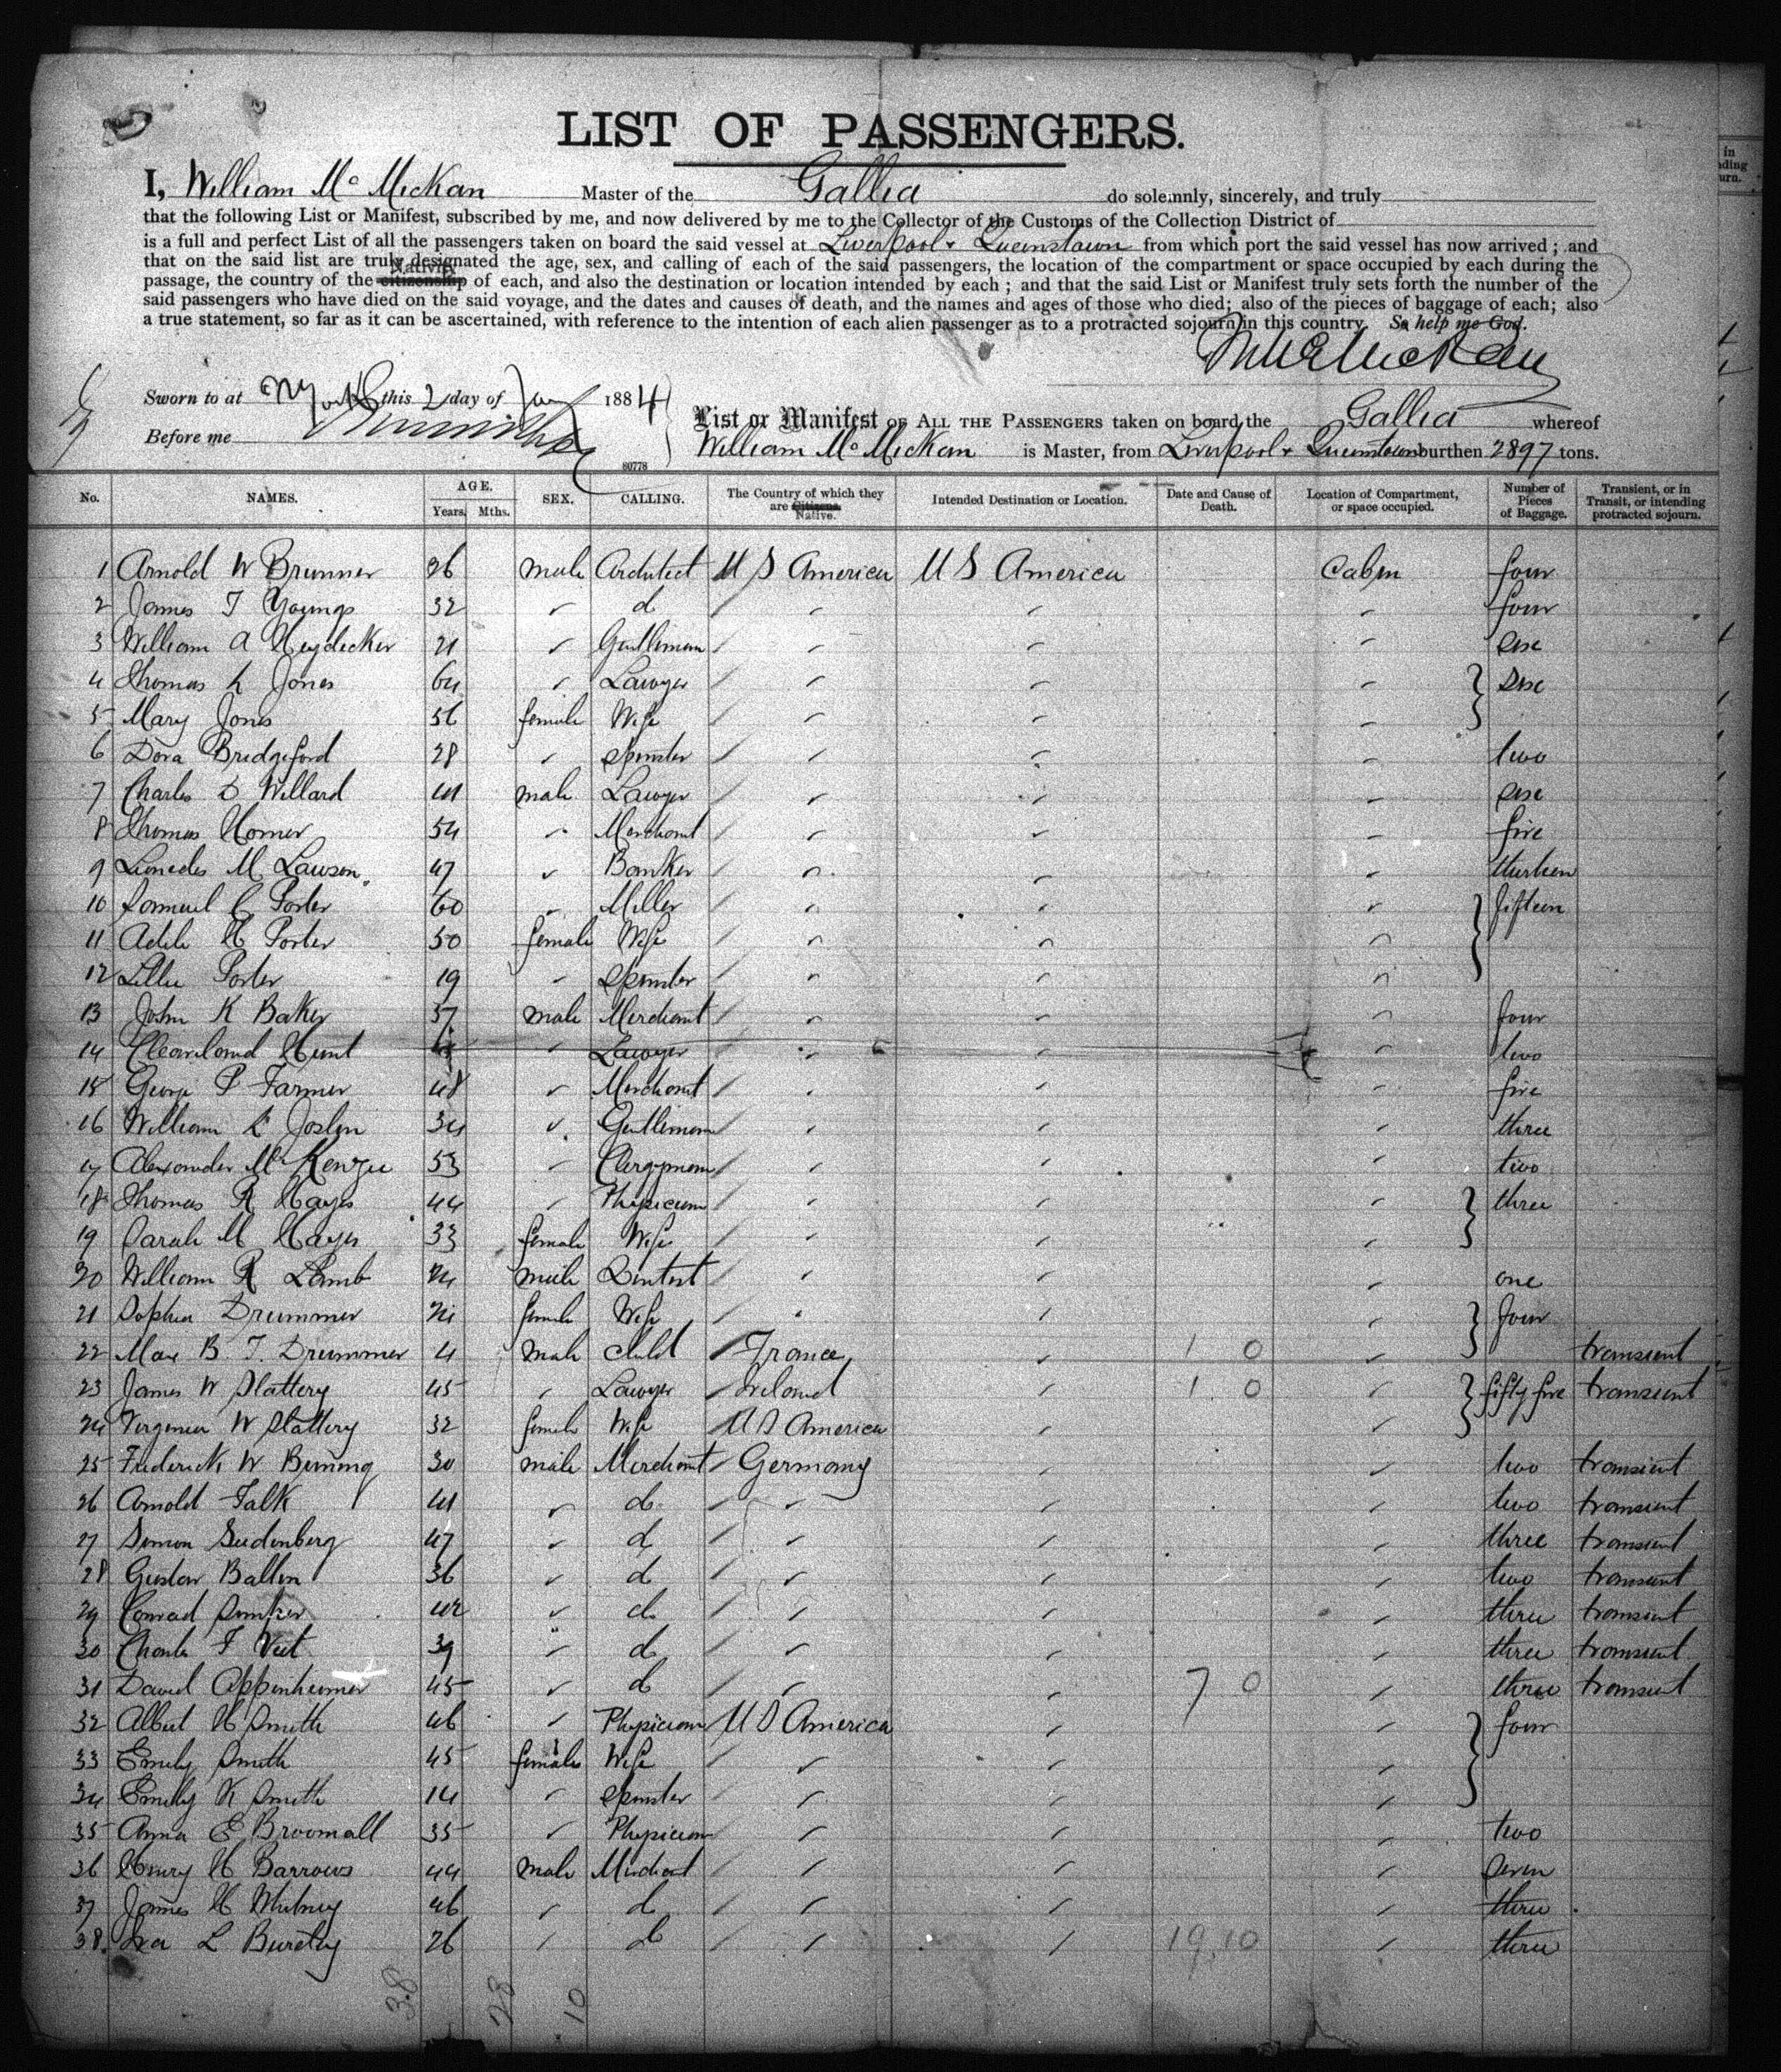 LIST OF PASSENGERS.
I, William Mc Mickan Master of the Gallia do solemnly, sincerely, and truly
that the following List or Manifest, subscribed by me, and now delivered by me to the Collector of the Customs of the Collection District of
is a full and perfect List of all the passengers taken on board the said vessel at Liverpool & Queenstown from which port the said vessel has now arrived; and
that on the said list are truly designated the age, sex, and calling of each of the said passengers, the location of the compartment or space occupied by each during the
Nativity
passage, the country of the citizenship of each, and also the destination or location intended by each; and that the said List or Manifest truly sets forth the number of the
said passengers who have died on the said voyage, and the dates and causes of death, and the names and ages of those who died; also of the pieces of baggage of each; also
a true statement, so far as it can be ascertained, with reference to the intention of each alien passenger as to a protracted sojourn in this country. So help me God.
Sworn to at N York this 2 day of Jany 1884
List or Manifest OF ALL THE PASSENGERS taken on board the Gallia whereof
Before me
William Mc Mickan is Master, from Liverpool & Queenstown burthen 2897 tons.
80778
No. NAMES. AGE. Years. Mths. SEX. CALLING. The Country of which they are Citizens. Native. Intended Destination or Location. Date and Cause of Death. Location of Compartment, or space occupied. Number of Pieces of Baggage. Transient, or in Transit, or intending protracted sojourn.
1 Arnold W Brunner 26 male Architect U S America U S America Cabin four
2 James T Youngs 32 " d " " " four
3 William A Heydecker 21 " Gentleman " " " six
4 Thomas L Jones 64 " Lawyer " " " six
5 Mary Jones 56 female Wife " " "
6 Dora Bridgeford 28 " Spinster " " " two
7 Charles D Willard 41 male Lawyer " " " six
8 Thomas Horner 54 " Merchant " " " five
9 M Lawson 47 " Banker " " " thirteen
10 Samuel C Porter 60 " Miller " " " fifteen
11 Adele H Porter 50 female Wife " " "
12 Lillie Porter 19 " Spinster " " "
13 John K Baker 37 male Merchant " " " four
14 Cleaveland Hunt " Lawyer " " " two
15 George P Farmer 48 " Merchant " " " five
16 William L Joslin 34 " Gentleman " " " three
17 Alexander McKenzie 53 " Clergyman " " " two
18 Thomas R Hayes 44 " Physician " " " three
19 Sarah M Hayes 33 female Wife " " "
20 William R Lamb 24 male Dentist " " " one
21 Sophia Drummer female Wife " " " four
22 Max B. T. Drummer 4 male child France " 1 0 " transient
23 James W Slattery 45 " Lawyer Ireland " 1 0 " fifty five transient
24 Virginia W Slattery 32 female Wife U S America " "
25 Frederick W Bruning 30 male Merchant Germany " " two transient
26 Arnold Falk 41 " do " " " two transient
27 Simon Seidenberg 47 " d " " " three transient
28 Gustav Ballin 36 " d " " " two transient
29 Conrad 42 " do " " " three transient
30 Charles F Veit 39 " d " " " three transient
31 David Oppenheimer 45 " d " " 7 0 " three transient
32 Albert H Smith 46 " Physician U S America " " four
33 Emily Smith 45 female Wife " " "
34 Emily K Smith 14 " Spinster " " "
35 Anna E Broomall 35 " Physician " " " two
36 Henry H Barrows 44 male Merchant " " " seven
37 James H Whitney 46 " d " " " three
38. Ira L 26 " d " " 19 10 " three
38 28 10